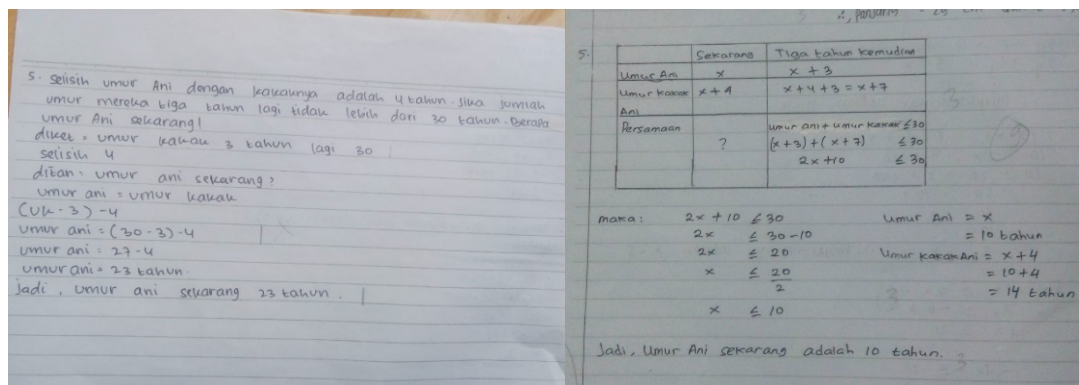 5. Selisih umur Ani dengan kakaknya adalah 4 tahun. Jika jumlah
umur mereka tiga tahun lagi tidak lebih dari 30 tahun. Berapa
umur Ani sekarang!
diket = umur kakak 3 tahun lagi 30
selisih 4
ditan = umur ani sekarang?
umur ani = umur kakak
(uk - 3) - 4
umur ani = (30 - 3) - 4
umur ani = 27 - 4
umur ani = 23 tahun.
Jadi, umur ani sekarang 23 tahun.
5.
Sekarang Tiga tahun kemudian
Umur Ani x x + 3
Umur Kakak x + 4 x + 4 + 3 = x + 7
Ani
Persamaan umur ani + umur kakak ≤ 30
? (x + 3) + (x + 7) ≤ 30
2x + 10 ≤ 30
maka : 2x + 10 ≤ 30
2x ≤ 30 - 10
2x ≤ 20
x ≤ 20
2
x ≤ 10
Umur Ani = x
= 10 tahun
Umur Kakak Ani = x + 4
= 10 + 4
= 14 tahun
Jadi, Umur Ani sekarang adalah 10 tahun.